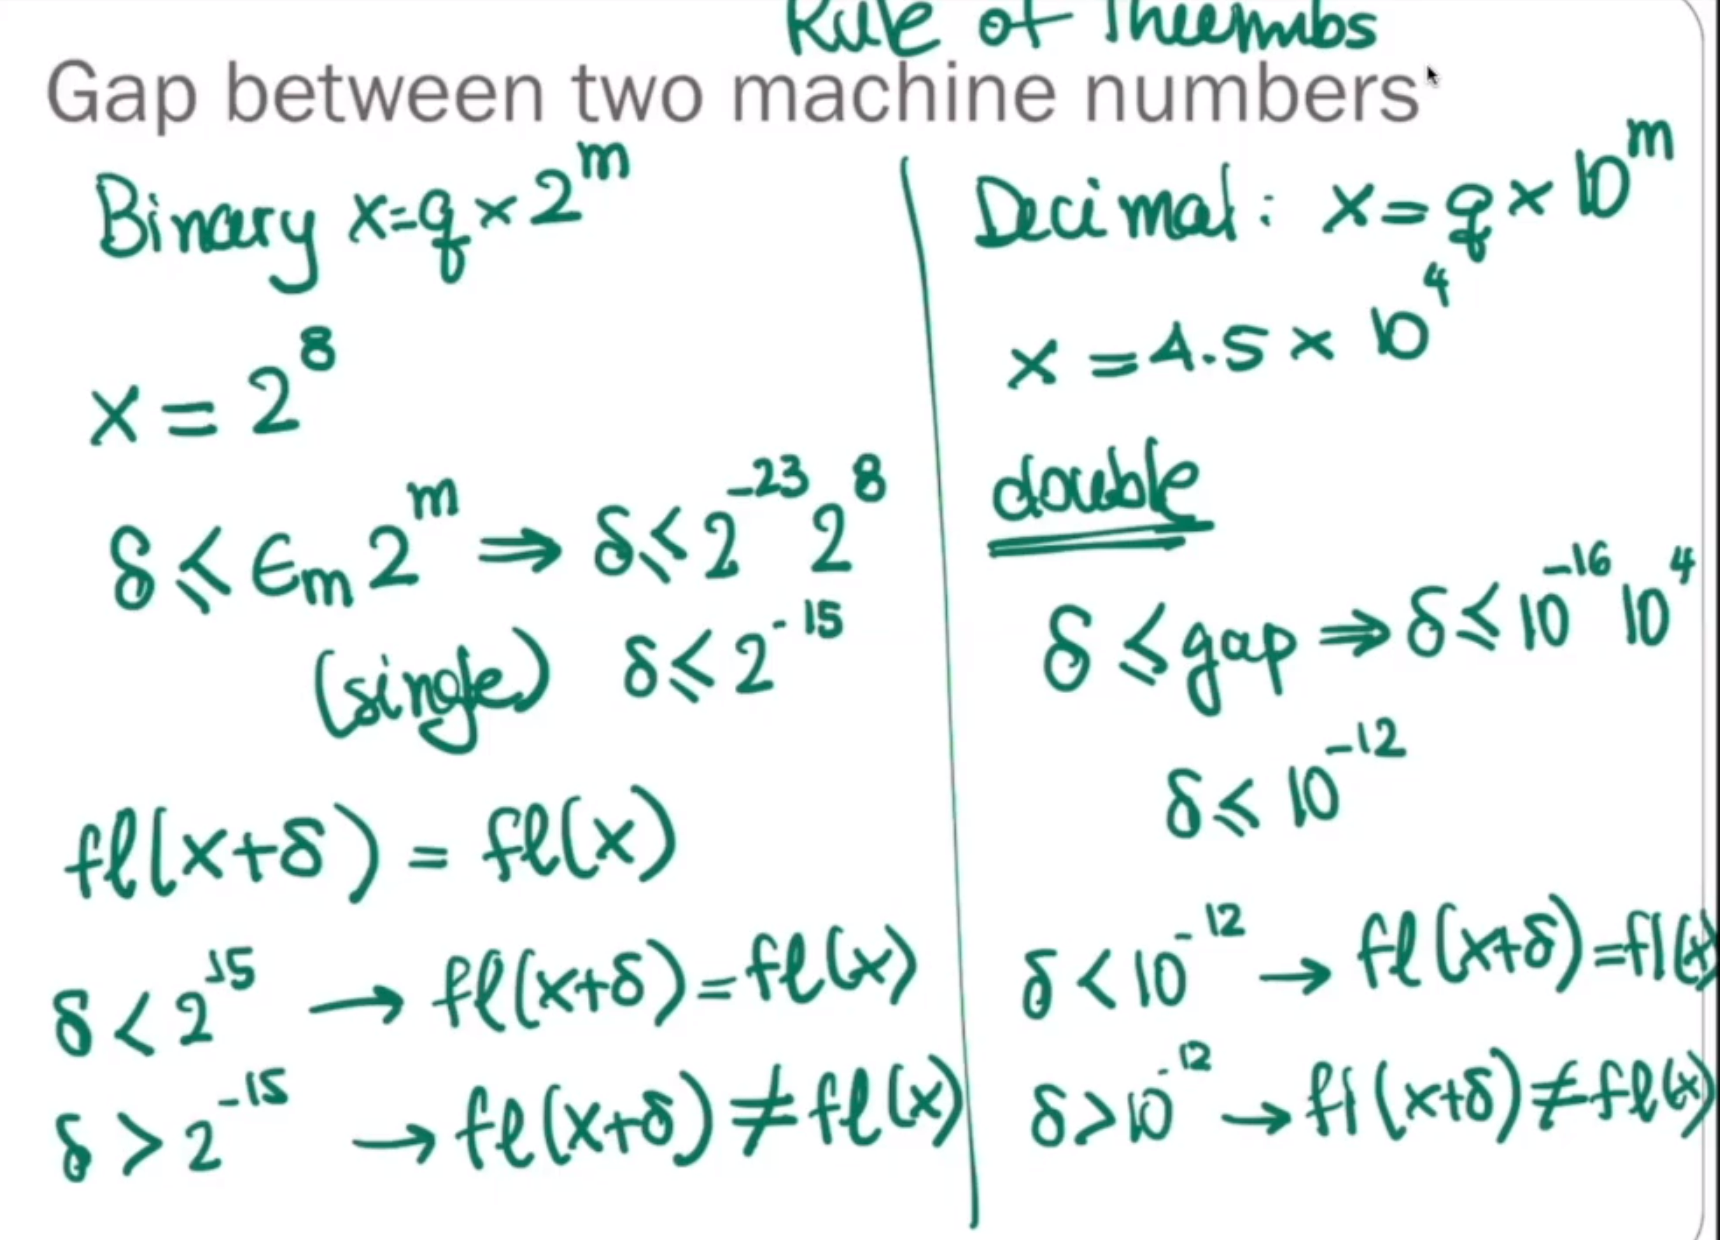 Rule of Thumbs
Gap between two machine numbers
Binary x=q×2^m
x = 2^8
δ ≤ ϵₘ 2^m ⇒ δ ≤ 2^-23 2^8
(single) δ ≤ 2^-15
fl(x+δ) = fl(x)
δ < 2^-15 → fl(x+δ) = fl(x)
δ > 2^-15 → fl(x+δ) ≠ fl(x)
Decimal: x = q × 10^m
x = 4.5 × 10^4
double
δ ≤ gap ⇒ δ ≤ 10^-16 10^4
δ ≤ 10^-12
δ < 10^-12 → fl(x+δ) = fl(x)
δ > 10^-12 → fl(x+δ) ≠ fl(x)